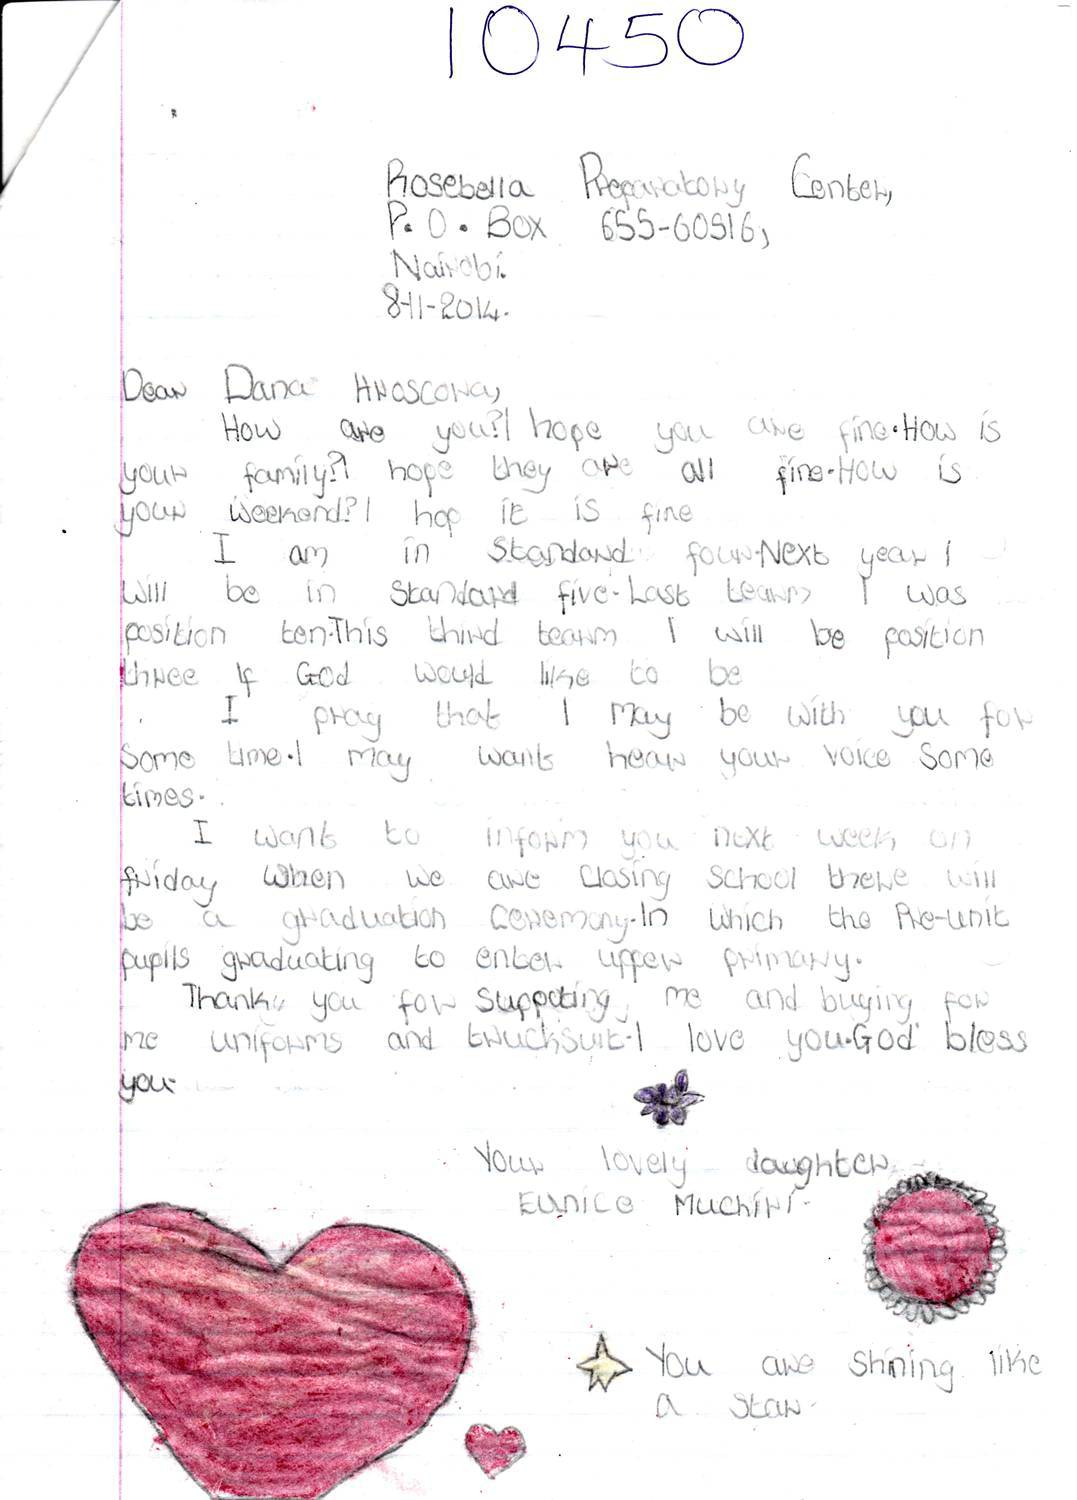 10450
Rosebella Preparatory Center,
P.O. Box 655-60516,
Nairobi.
8-11-2014.
Dear Dana Hroscova,
How are you?I hope you are fine.How is
your family?I hope they are all fine.How is
your weekend?I hop it is fine
I am in Standard four.Next year I
will be in Standard five.Last tearm I was
position ten.This third tearm I will be position
three if God would like to be
I pray that I may be with you for
some time.I may want hear your voice some
times.
I want to inform you next week on
friday when we are closing school there will
be a graduation ceremony.In which the Pre-unit
pupils graduating to enter upper primary.
Thank you for suppoting me and buying for
me uniforms and trucksuit.I love you.God bless
you.
Your lovely daughter
Eunice Muchiri.
You are shining like
a star.